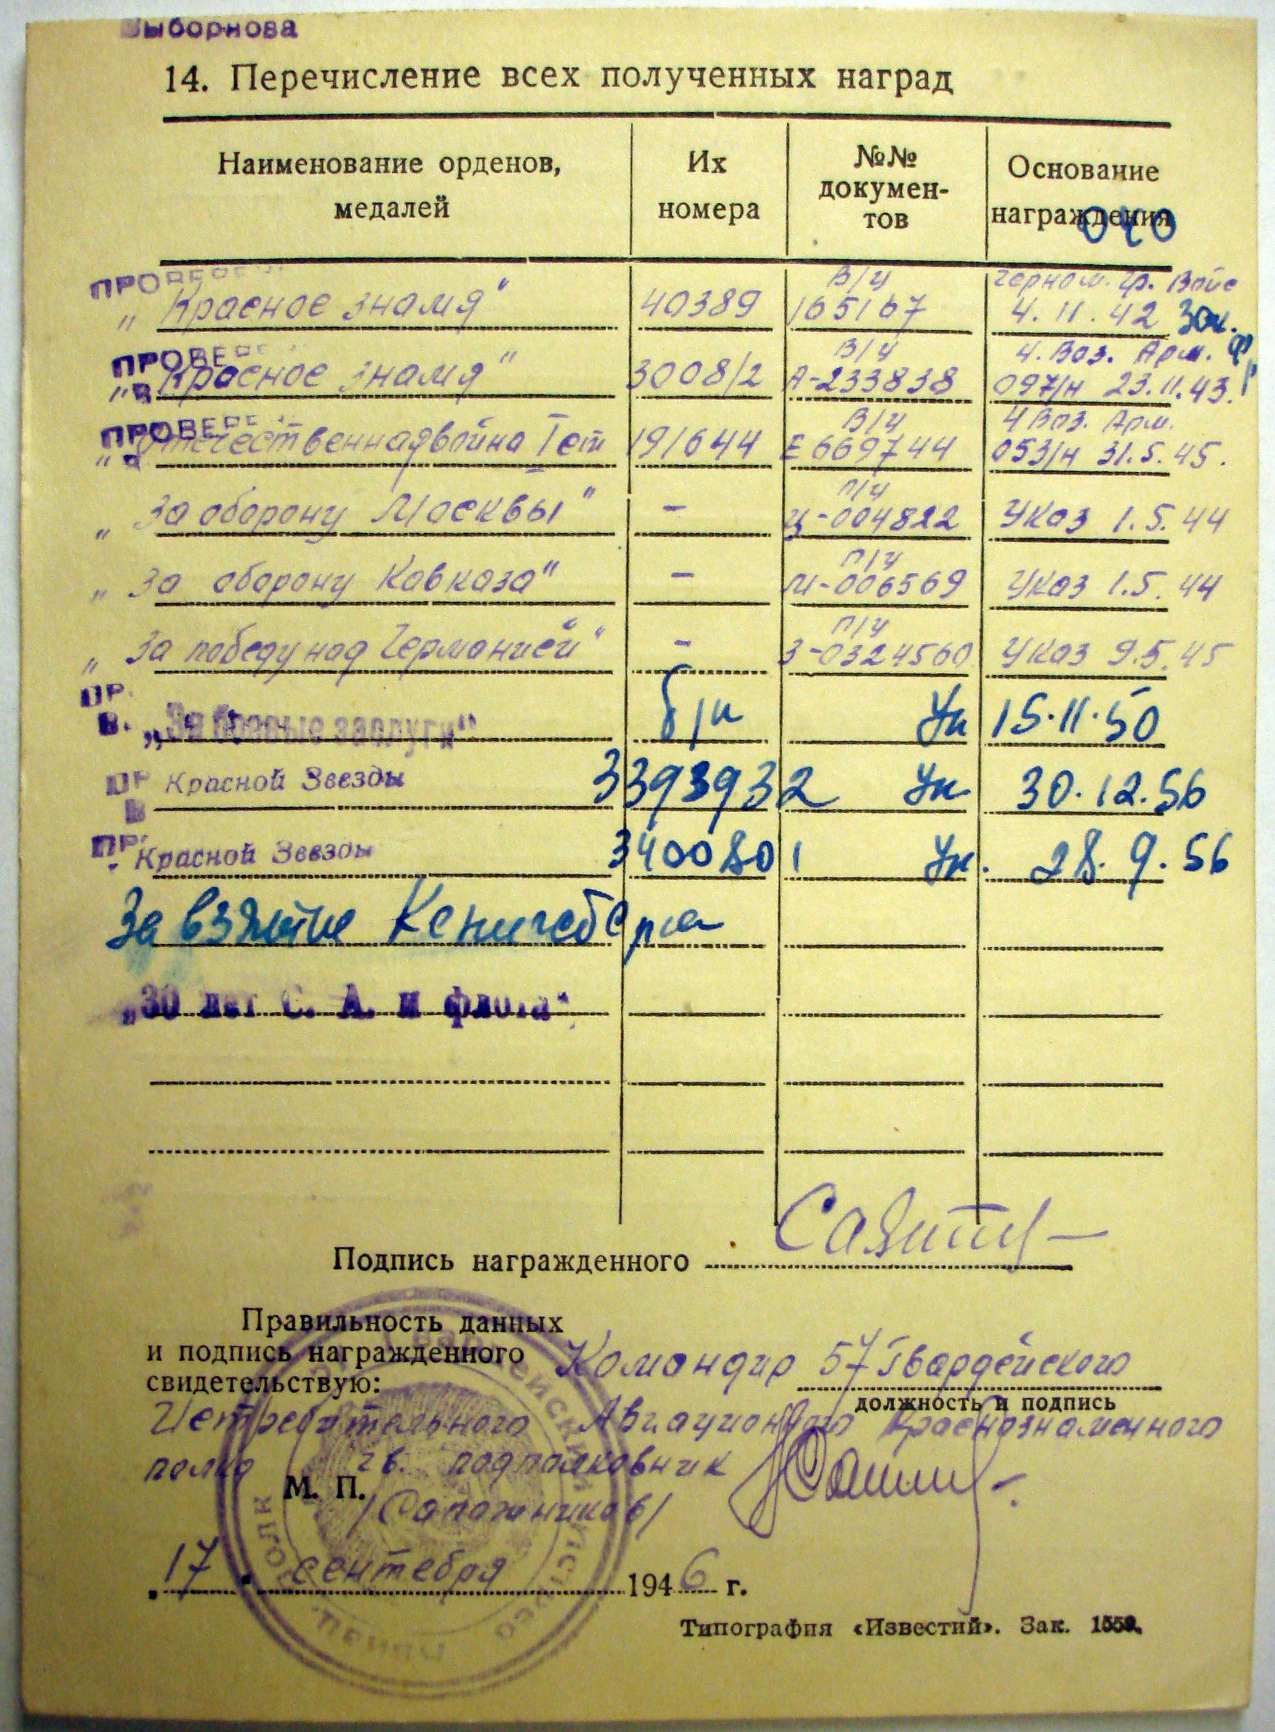 Выборнова
14. Перечисление всех полученных наград
Наименование орденов, медалей
Их номера
№№ докумен-тов
Основание награждения
040
ПРОВЕРЕ
В/ч Черном. гр. Войс
„Красное знамя" 40389 165167 4.11.42 Зак.
ПРОВЕРЕ
В/ч 4. Воз. Арм. фр
„Красное знамя" 3008/2 А-233838 097/н 23.11.43.
ПРОВЕРЕ
В/ч 4 Воз. Арм.
„Отечественная война I ст 191644 Е 669744 053/н 31.5.45.
П/ч
„За оборону Москвы" - Ц-004822 Указ 1.5.44
П/ч
„За оборону Кавказа" - М-006569 Указ 1.5.44
П/ч
„За победу над Германией" - З-0324560 Указ 9.5.45
ПР.
В. „За боевые заслуги" б/н Ук 15.11.50
ПР
В Красной Звезды 3393932 Ук 30.12.56
ПР
Красной Звезды 3400801 Ук. 28.9.56
За взятие Кенигсберга
„30 лет С. А. и флота"
Подпись награжденного
Правильность данных
и подпись награжденного Командир 57 Гвардейского
свидетельствую:
должность и подпись
Истребительного Авиационного Краснознаменного
полка гв. подполковник
М. П. /Сапожников/
„17" сентября 1946 г.
Типография «Известий». Зак. 1559.